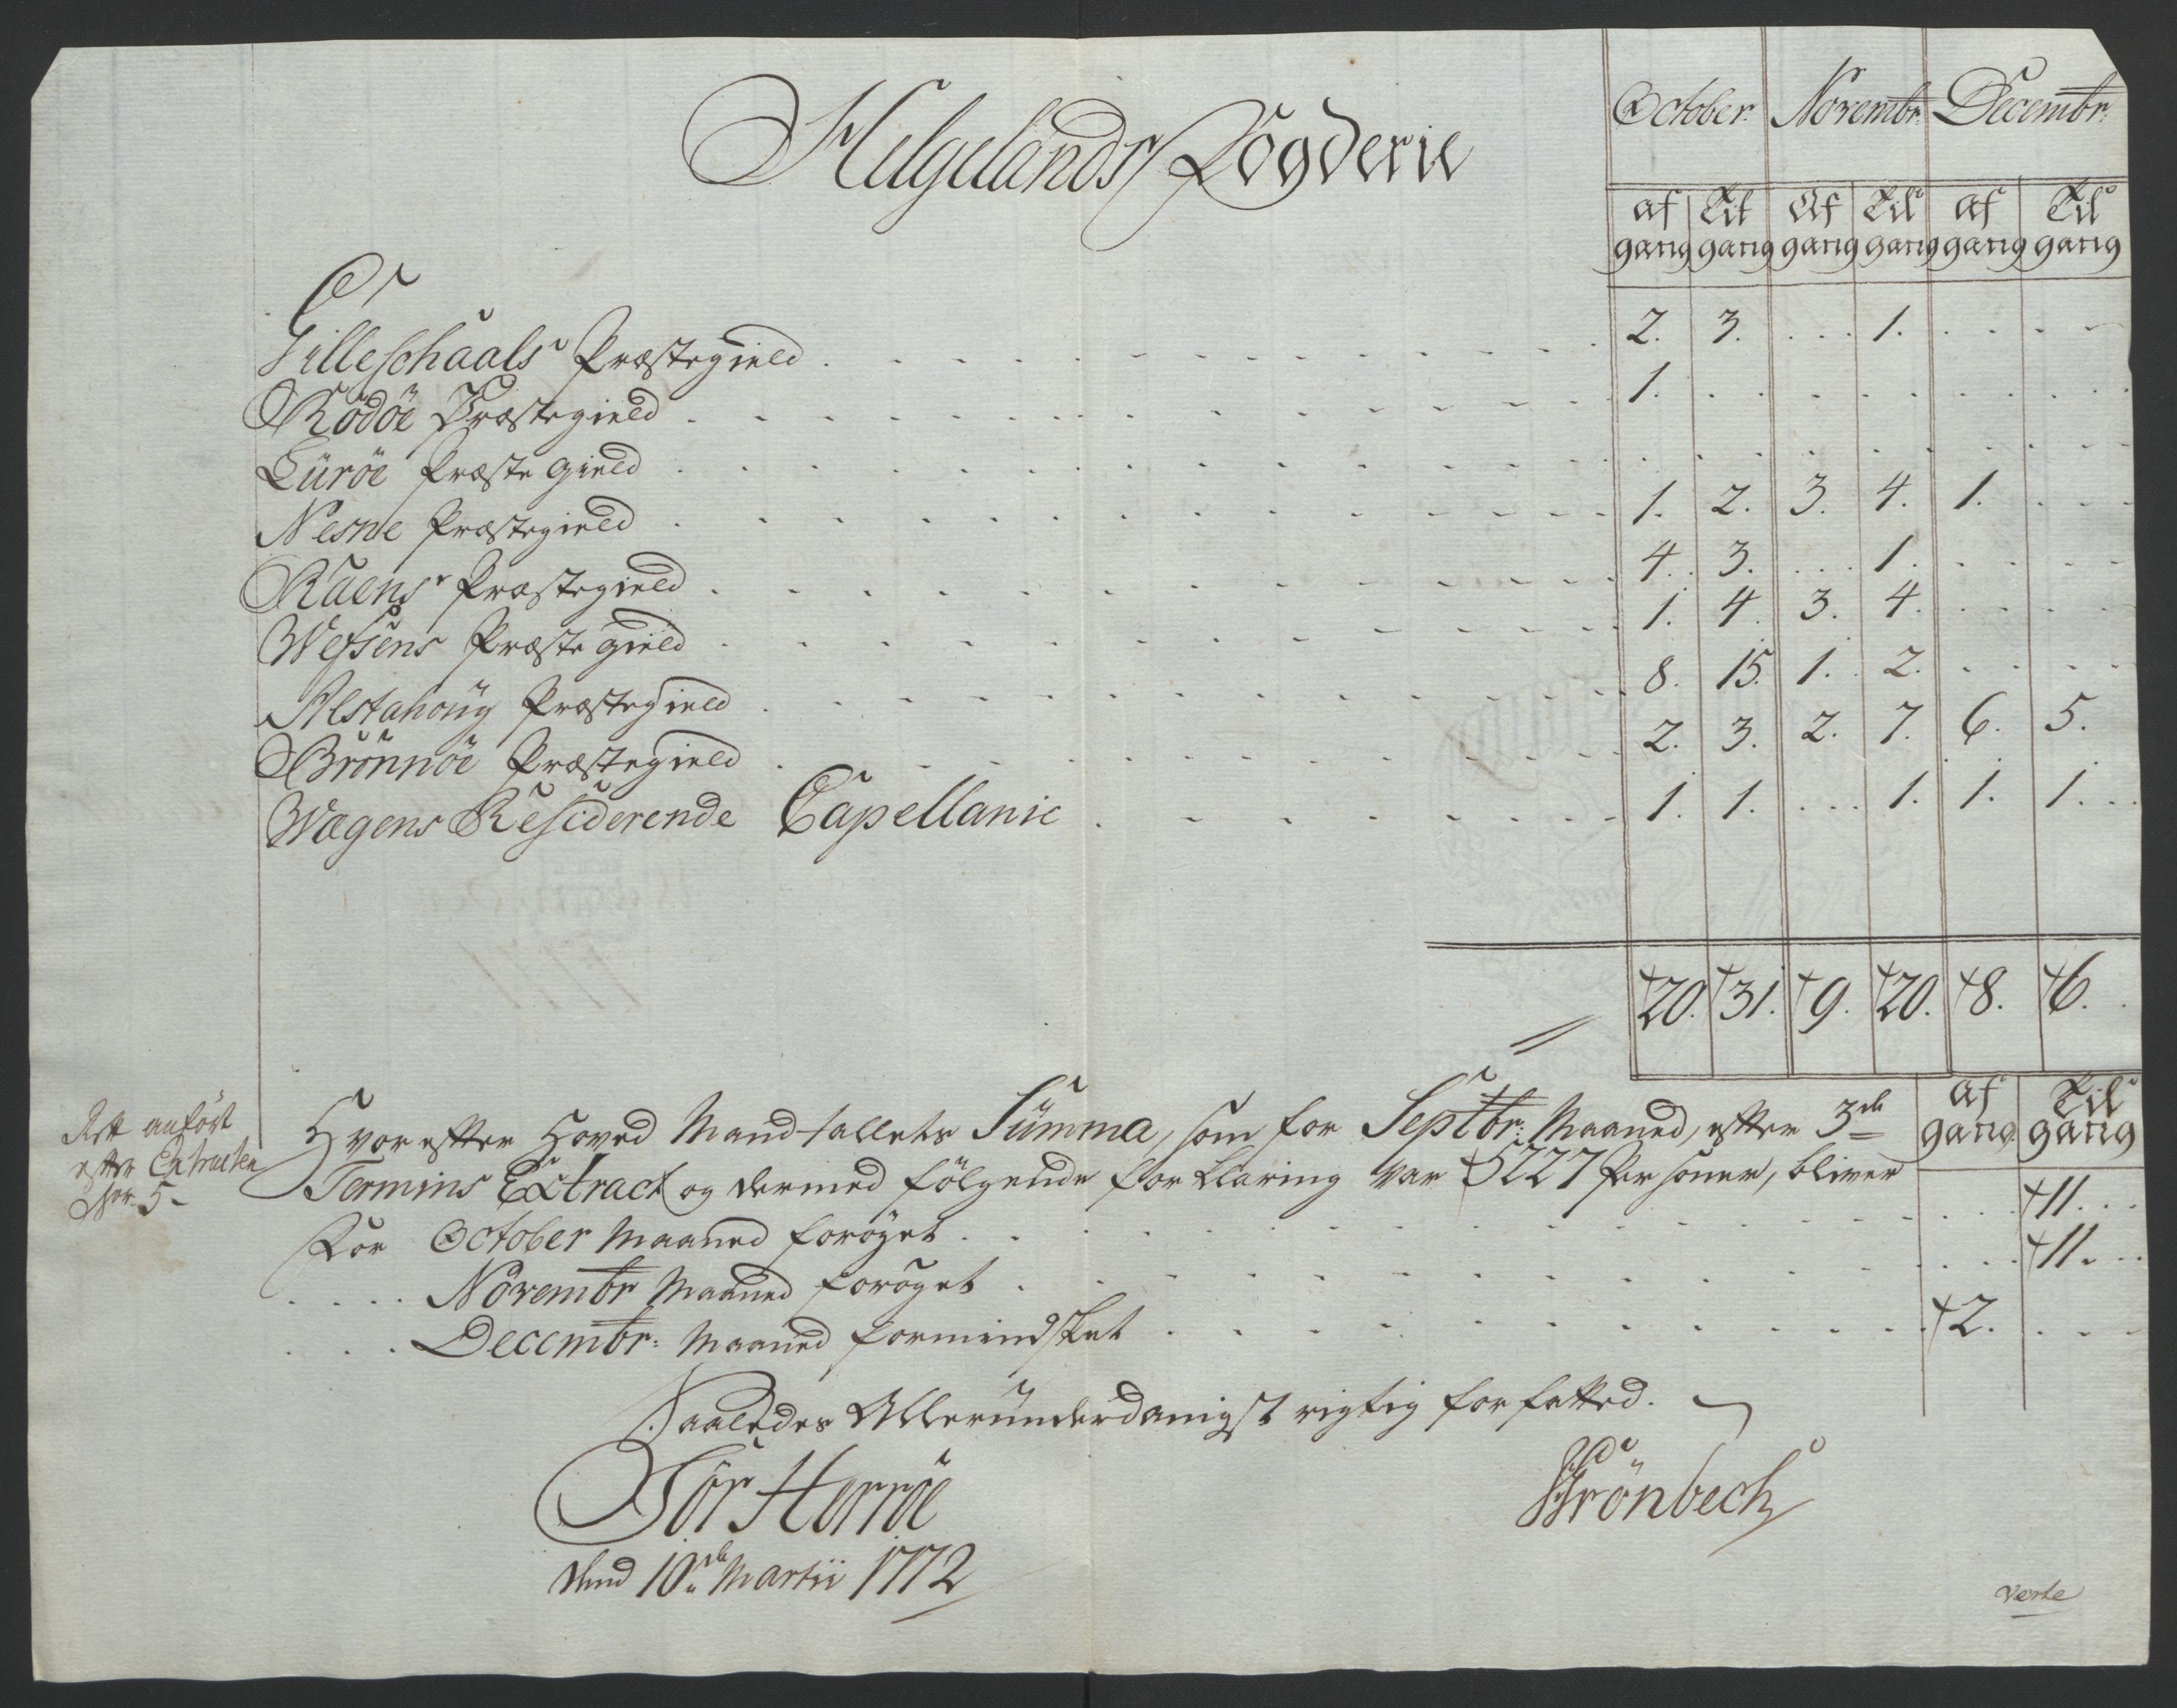 Helgelands Fögderie
October. Novembr: Decembr:
af Til Af Til af Til
gang gang gang gang gang gang
Gilleschaals Præstegield 2. 3. 1.
Rödöe Præstegield 1.
Luröe Præste Gield
Nesne Præstegield 1. 2. 3. 4. 1.
Raens Præstegield 4. 3. 1.
Wefsens Præste gield 1. 4. 3. 4.
Alstahoug Præstegield 8. 15. 1. 2.
Brönnöe Præstegield 2. 3. 2. 7. 6. 5.
Wægens Residerende Capellanie 1. 1. 1. 1. 1.
20. 31. 9. 20. 8. 6.
af Til
gang gang
Rett anfört
efter Extracten
Nor. 5.
Hvorefter Hoved Mand-tallets Summa, som for Septbr: Maaned, efter 3de
Termins Extract og dermed fölgende forklaring var 5227 Personer, bliver
For October Maaned foröget 11.
Novembr Maaned foröget 11.
Decembr: Maaned formindsket 2.
Saaledes Allerunderdanigst rigtig forfatted.
Sör Herröe
dend 10de Martii 1772
Brönbech
verte